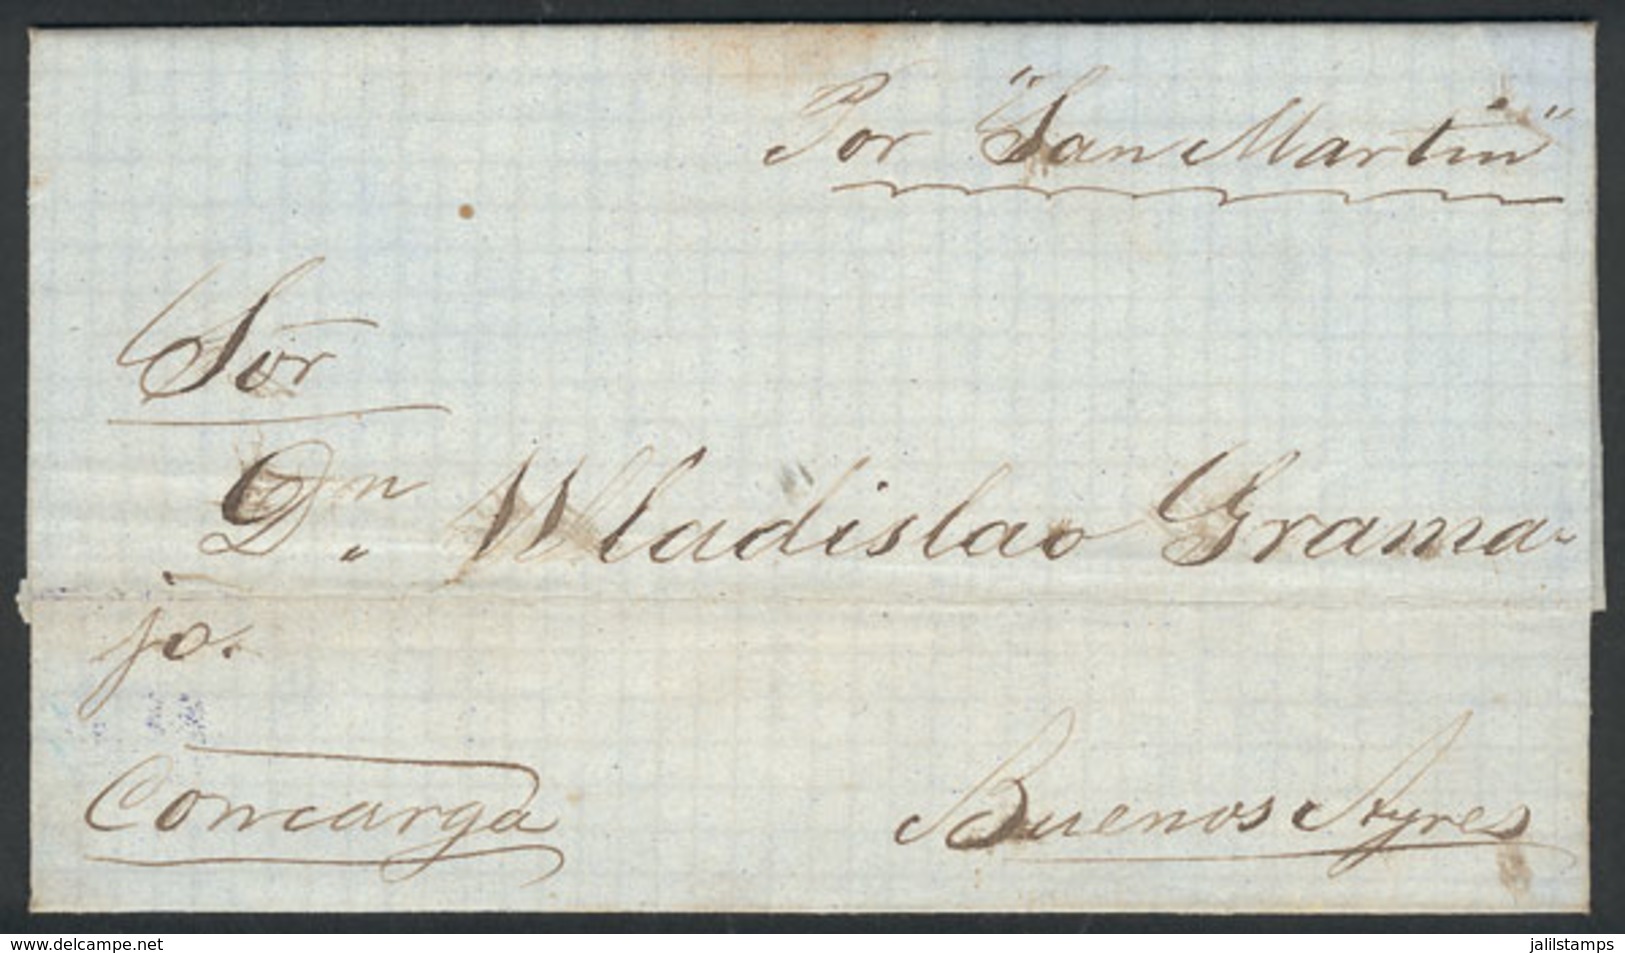 Por "San Martin"
Sor
Dn. Wladislao Grama-
jo.
Concarga
Buenos Ayres
www.delcampe.net
jalilstamps